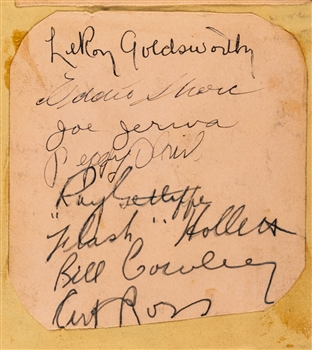 LeRoy Goldsworthy
Eddie Shore
Joe Jerwa
Peggy O'Neil
Ray Getliffe
"Flash" Hollett
Bill Cowley
Art Ross